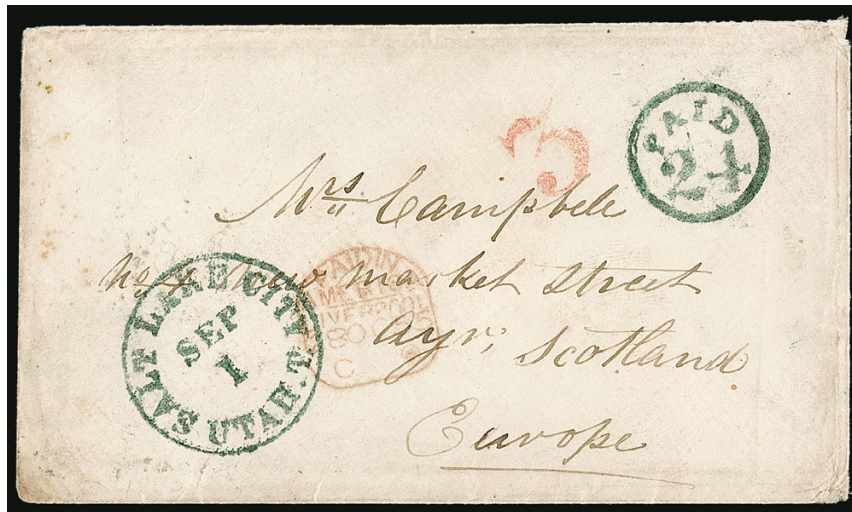 PAID
24
3
Mrs Campbele
No 4 New Market Street
Ayr, Scotland
Europe
SALT LAKE CITY
SEP
1
UTAH.T.
PAID IN
AMERICA
LIVERPOOL
80
C